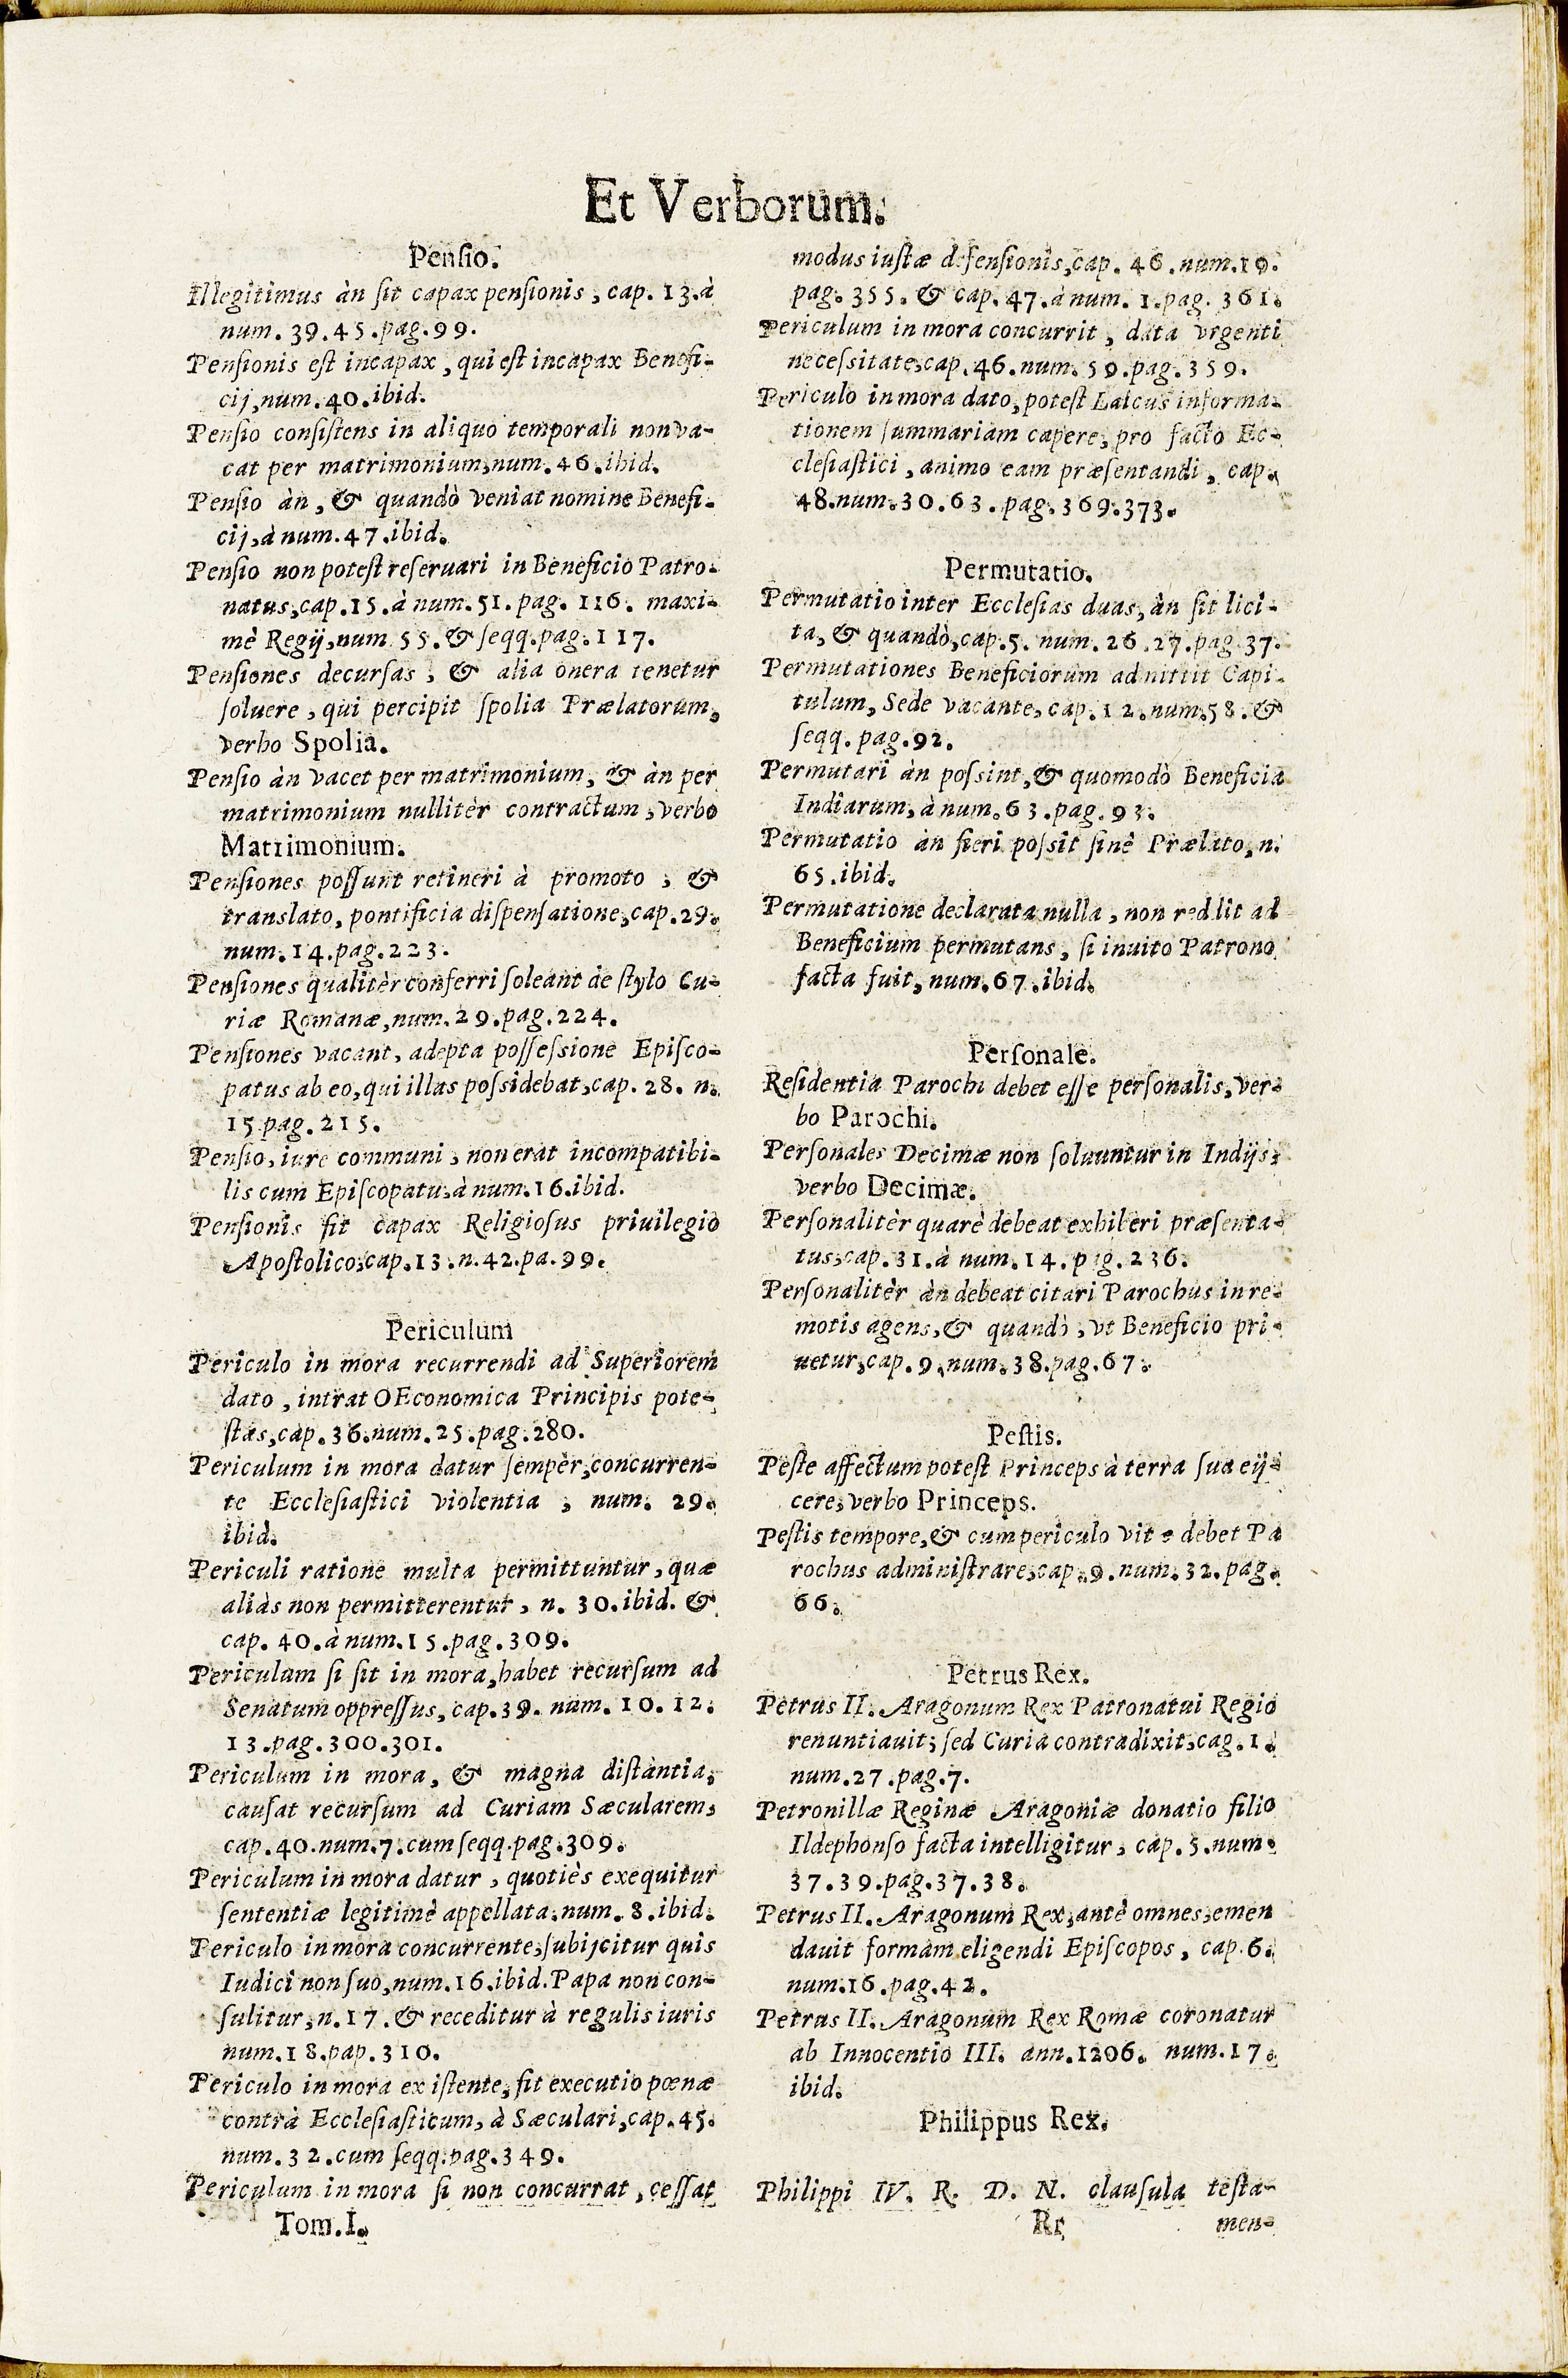 Et Verborum.
Penſio.
Illegitimus àn ſit capax penſionis, cap. 13. à
num. 39. 45. pag. 99.
Penſionis eſt incapax, qui eſt incapax Benefi-
cij, num. 40. ibid.
Penſio conſiſtens in aliquo temporali non va-
cat per matrimonium, num. 46. ibid.
Penſio àn, & quandò veniat nomine Benefi-
cij, à num. 47. ibid.
Penſio non poteſt reſeruari in Beneficio Patro-
natus, cap. 15. à num. 51. pag. 116. maxi-
mè Regij, num. 55. & ſeqq. pag. 117.
Penſiones decurſas, & alia onera tenetur
ſoluere, qui percipit ſpolia Prælatorum,
verbo Spolia.
Penſio àn vacet per matrimonium, & àn per
matrimonium nullitèr contractum, verbo
Matrimonium.
Penſiones poſſunt retineri à promoto, &
translato, pontificia diſpenſatione, cap. 29.
num. 14. pag. 223.
Penſiones qualitèr conferri ſoleant de ſtylo Cu-
riæ Romanæ, num. 29. pag. 224.
Penſiones vacant, adepta poſſeſsione Epiſco-
patus ab eo, qui illas poſsidebat, cap. 28. n.
15. pag. 215.
Penſio, iure communi, non erat incompatibi-
lis cum Epiſcopatu, à num. 16. ibid.
Penſionis fit capax Religioſus priuilegio
Apoſtolico, cap. 13. n. 42. pa. 99.
Periculum
Periculo in mora recurrendi ad Superiorem
dato, intrat OEconomica Principis pote-
ſtas, cap. 36. num. 25. pag. 280.
Periculum in mora datur ſempèr, concurren-
te Eccleſiaſtici violentia, num. 29.
ibid.
Periculi ratione multa permittuntur, quæ
aliàs non permitterentur, n. 30. ibid. &
cap. 40. à num. 15. pag. 309.
Periculum ſi ſit in mora, habet recurſum ad
Senatum oppreſſus, cap. 39. num. 10. 12.
13. pag. 300. 301.
Periculum in mora, & magna diſtàntia,
cauſat recurſum ad Curiam Sæcularem,
cap. 40. num. 7. cum ſeqq. pag. 309.
Periculum in mora datur, quotiès exequitur
ſententiæ legitimè appellata, num. 8. ibid.
Periculo in mora concurrente, ſubijcitur quis
Iudici non ſuo, num. 16. ibid. Papa non con-
ſulitur, n. 17. & receditur à regulis iuris
num. 18. pap. 310.
Periculo in mora exiſtente, fit executio pœnæ
contrà Eccleſiaſticum, à Sæculari, cap. 45.
num. 32. cum ſeqq. pag. 349.
Periculum in mora ſi non concurrat, ceſſat
Tom. I.
modus iuſtæ defenſionis, cap. 46. num. 10.
pag. 355. & cap. 47. à num. 1. pag. 361.
Periculum in mora concurrit, data vrgenti
neceſsitate, cap. 46. num. 59. pag. 359.
Periculo in mora dato, poteſt Laicus informa-
tionem ſummariam capere, pro facto Ec-
cleſiaſtici, animo eam præſentandi, cap.
48. num. 30. 63. pag. 369. 373.
Permutatio.
Permutatio inter Eccleſias duas, àn ſit lici-
ta, & quandò, cap. 5. num. 26. 27. pag. 37.
Permutationes Beneficiorum admittit Capi-
tulum, Sede vacante, cap. 12. num. 58. &
ſeqq. pag. 92.
Permutari àn poſsint, & quomodò Beneficia
Indiarum, à num. 63. pag. 93.
Permutatio àn fieri poſsit ſinè Prælato, n.
65. ibid.
Permutatione declarata nulla, non reddit ad
Beneficium permutans, ſi inuito Patrono
facta fuit, num. 67. ibid.
Perſonale.
Reſidentia Parochi debet eſſe perſonalis, ver-
bo Parochi.
Perſonales Decimæ non ſoluuntur in Indijs,
verbo Decimæ.
Perſonalitèr quarè debeat exhiberi præſenta-
tus, cap. 31. à num. 14. pag. 236.
Perſonalitèr àn debeat citari Parochus in re-
motis agens, & quandò, vt Beneficio pri-
uetur, cap. 9. num. 38. pag. 67.
Peſtis.
Peſte affectum poteſt Princeps à terra ſua eij-
cere, verbo Princeps.
Peſtis tempore, & cum periculo vitæ debet Pa
rochus adminiſtrare, cap. 9. num. 32. pag.
66.
Petrus Rex.
Petrus II. Aragonum Rex Patronatui Regio
renuntiauit; ſed Curia contradixit, cag. 1.
num. 27. pag. 7.
Petronillæ Reginæ Aragoniæ donatio filio
Ildephonſo facta intelligitur, cap. 5. num.
37. 39. pag. 37. 38.
Petrus II. Aragonum Rex, antè omnes, emen
dauit formam eligendi Epiſcopos, cap. 6.
num. 16. pag. 42.
Petrus II. Aragonum Rex Romæ coronatur
ab Innocentio III. ann. 1206. num. 17.
ibid.
Philippus Rex.
Philippi IV. R. D. N. clauſula teſta-
Rr
men-